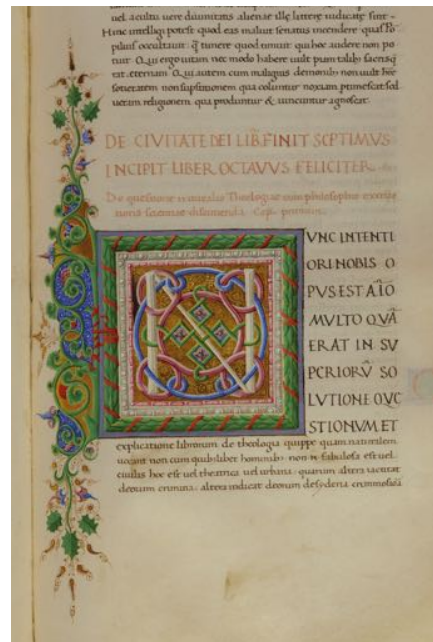 uel a cultu uere diuinitatis alienae ille litterę iudicatę sint
Hunc intelligi potest quod eas maluit senatus incendere quas Po
pilius occultauit
tuit Qui ergo uitam nec modo habere uult
tat eternam Qui autem cum malignis demonibus non uult
societatem non supstitionem qua coluntur noxiam
ueram religionem qua produntur & uincuntur agnoscat
DE CIVITATE DEI LIB̃ FINIT SEPTIMVS
INCIPIT LIBER OCTAVVS FELICITER
De questione naturalis Theologiae cum philosophis
scientiae discutienda Cap primum
N
VNC INTENTI
ORI NOBIS O
PVS EST AĨO
MVLTO QVÃ
ERAT IN SV
PERIORṼ SO
LVTIONE QVE
STIONVM ET
explicatione librorum de theologia quippe quam naturalem
uocant non cum quibuslibet hominibus non fabulosa est uel
ciuilis hoc est uel theatrica uel urbana quarum altera iactitat
deorum crimina altera indicat deorum desyderia criminosiora